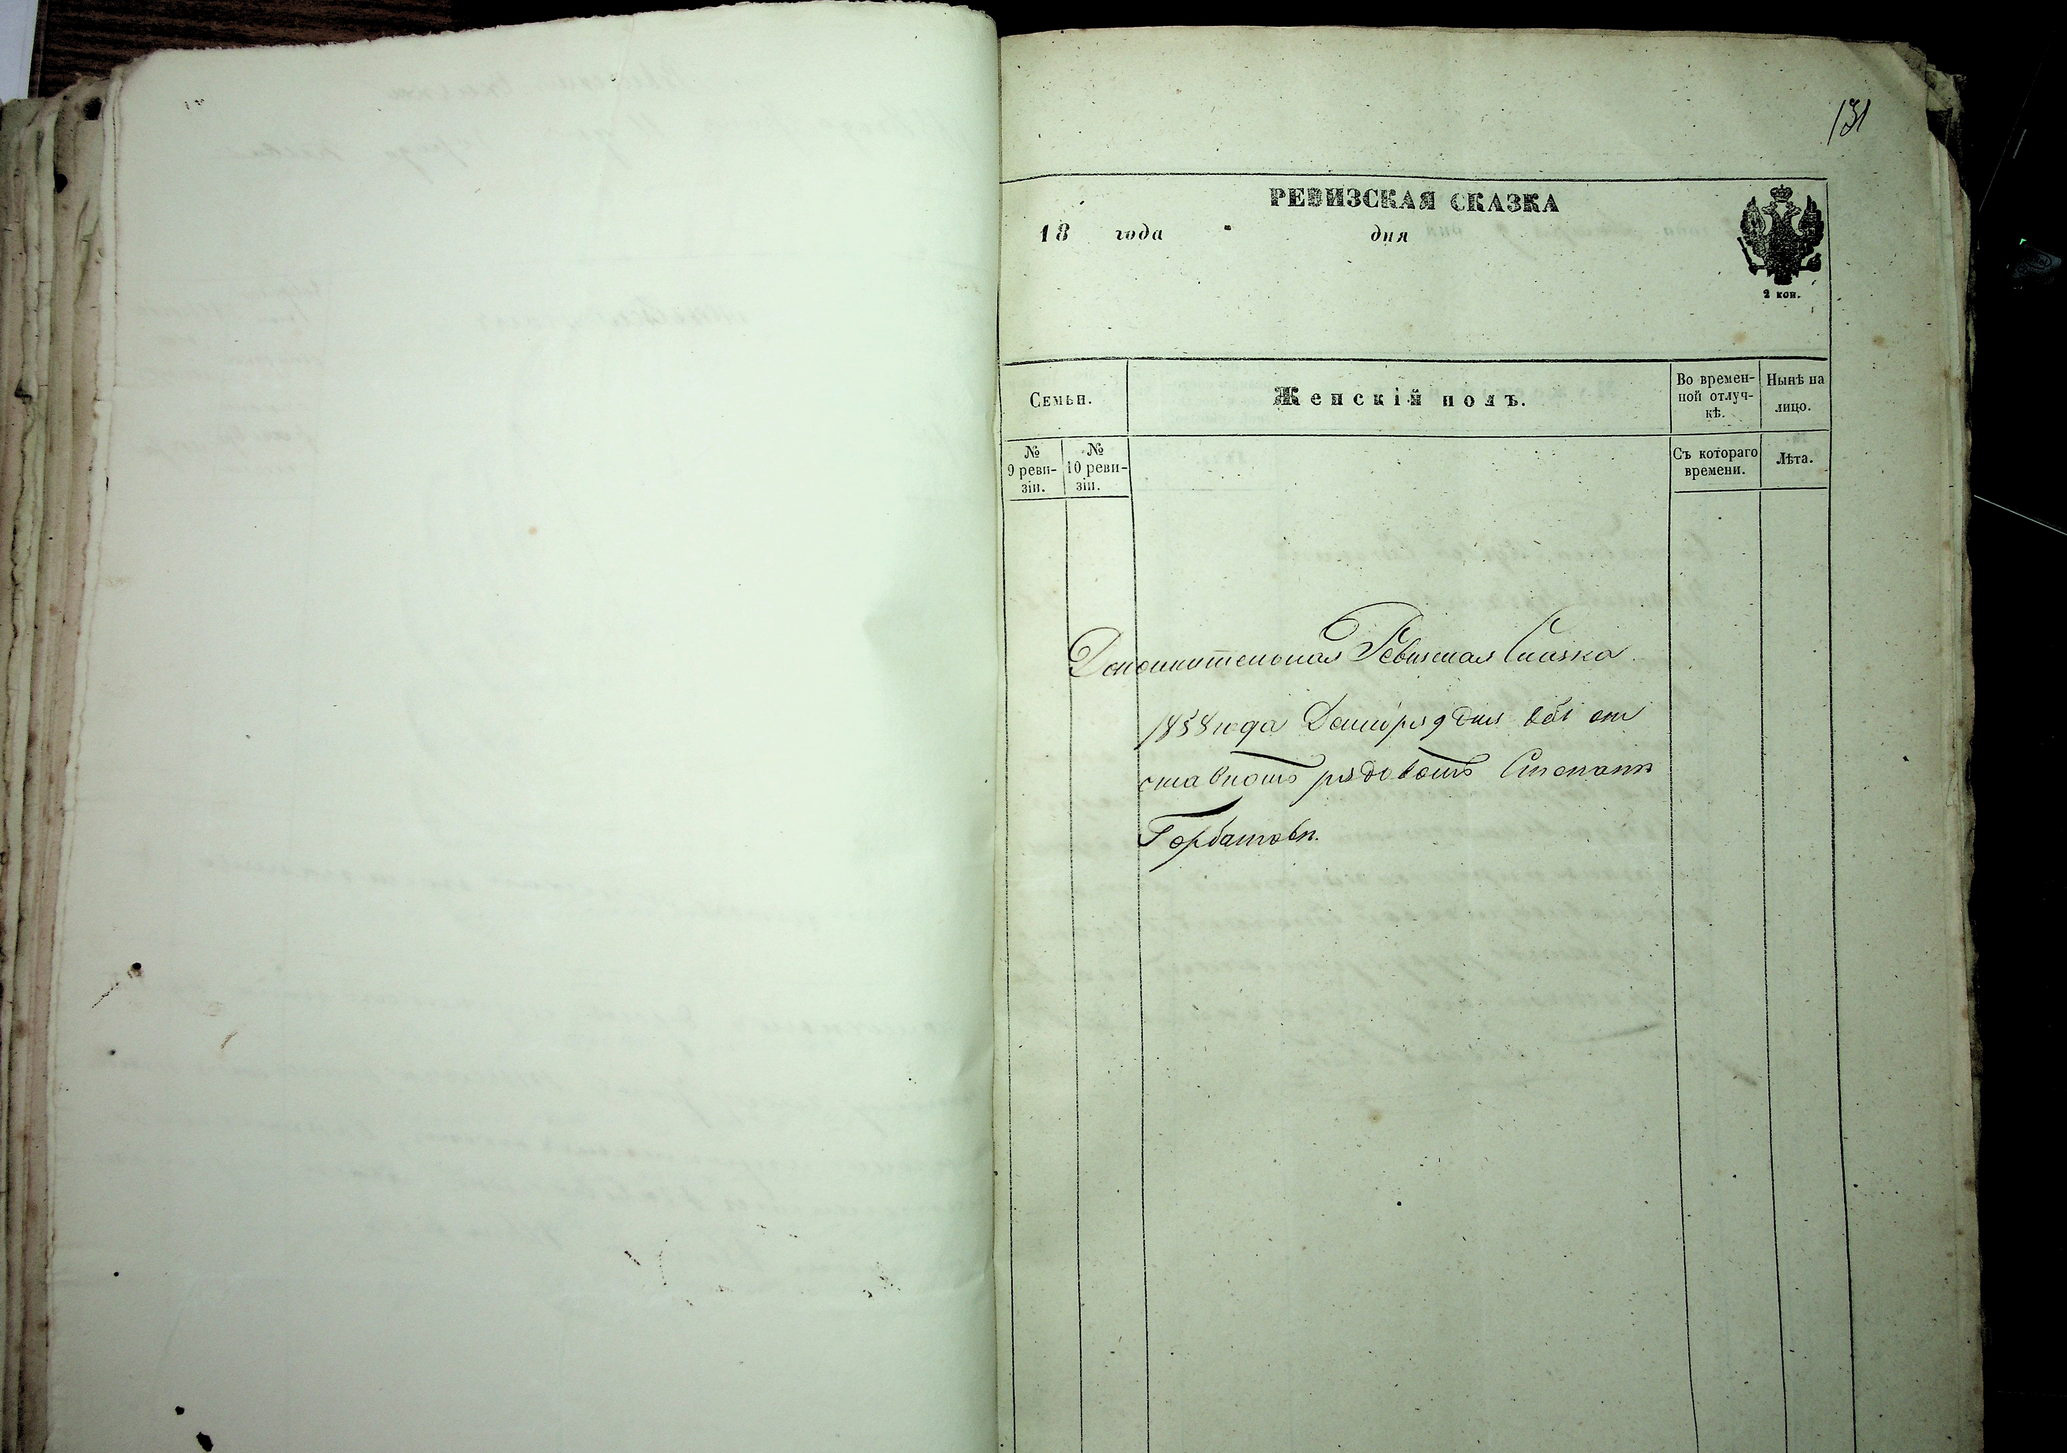 131
РЕВИЗСКАЯ СКАЗКА
18 года дня
2 коп.
Семьи.
Женскій полъ.
Во времен-
ной отлуч-
кѣ.
Нынѣ на
лицо.
№
9 реви-
зіи.
№
10 реви-
зіи.
Съ котораго
времени.
Лѣта.
Дополнительная Ревизская Сказка
1858 года Декабря 9 дня объ от
ставномъ рядовомъ Степанѣ
Горбатовѣ.